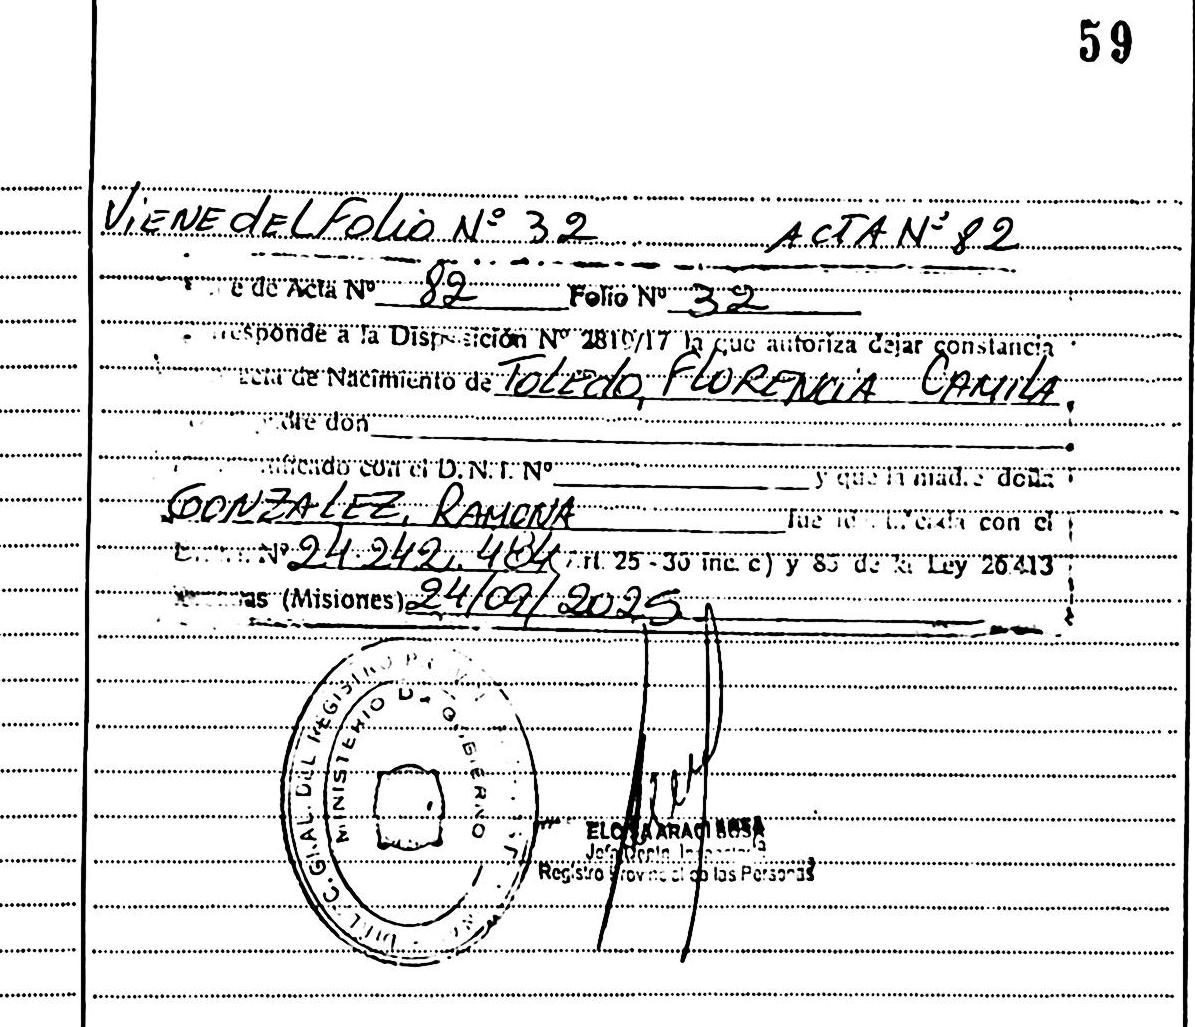 59
Viene del Folio Nº 32 ACTA Nº 82
e de Acta Nº 82 Folio Nº 32
responde a la Disposición Nº 2810/17 la que autoriza dejar constancia
de Nacimiento de TOLEDO, FLORENCIA CAMILA
don
con el D.N.I. Nº y que la madre doña
GONZALEZ, RAMONA fue identificada con el
Nº 24.242.484 (Art. 25 - 30 inc. c) y 85 de la Ley 26.413
as (Misiones) 24/09/2025
GRAL. DEL REGISTRO
MINISTERIO DE GOBIERNO
ARACI SOSA
Jefa Dpto.
Registro Provincial de las Personas